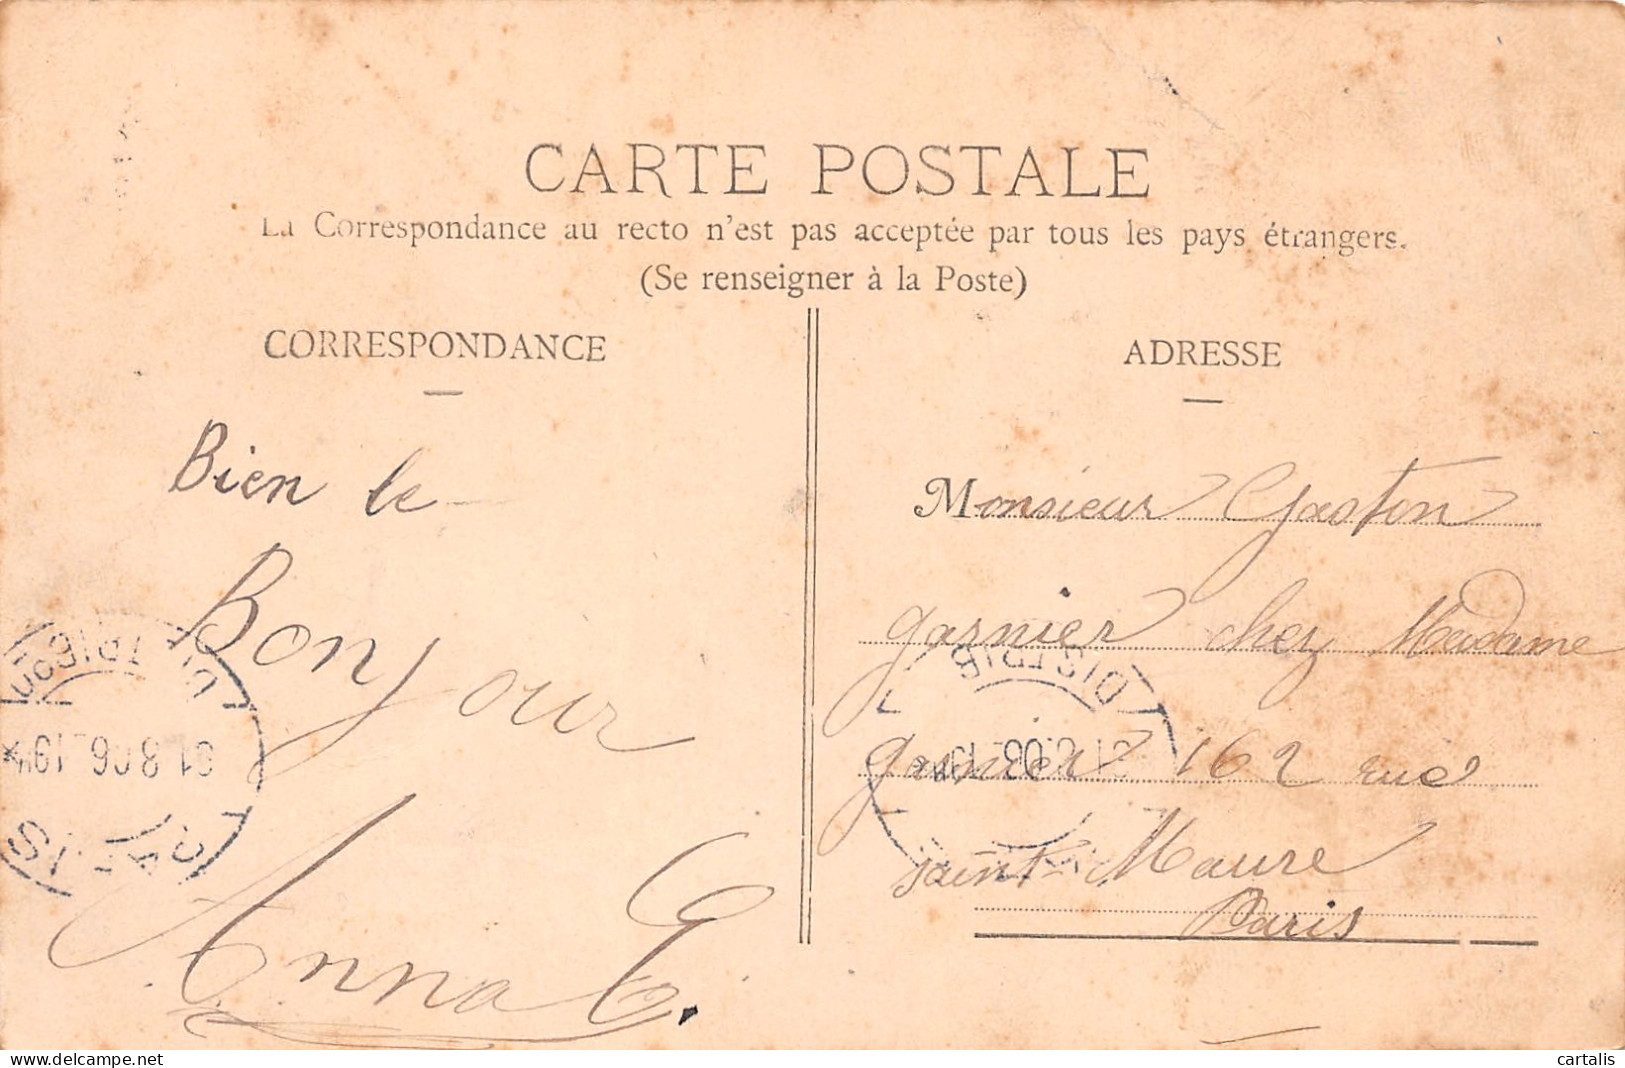 CARTE POSTALE
La Correspondance au recto n'est pas acceptée par tous les pays étrangers.
(Se renseigner à la Poste)
CORRESPONDANCE
Bien le
Bonjour
Anna G.
ADRESSE
Monsieur Gaston
garnier chez Madame
garnier 162 rue
saint Maure
Paris
PARIS
DISTRIB
delcampe.net
cartalis